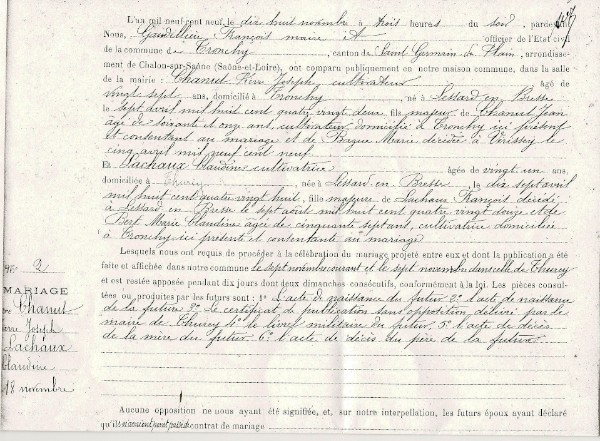 L'an mil neuf cent neuf, le dix huit novembre à trois heures du soir, par devant
Nous, Gaudillière François maire et officier de l'Etat civil
de la commune de Tronchy, canton de Saint Germain du Plain, arrondisse-
ment de Chalon-sur-Saône (Saône-et-Loire), ont comparu publiquement en notre maison commune, dans la salle
de la mairie : Chanut Pierre Joseph, cultivateur âgé de
vingt sept ans, domicilié à Tronchy, né à Lessard en Bresse
le sept avril mil huit cent quatre vingt deux, fils majeur de Chanut Jean
âgé de soixante et onze ans, cultivateur domicilié à Tronchy ici présent
et consentant au mariage et de Marie décédée à
le cinq avril mil neuf cent neuf
Et Lachaux Claudine cultivatrice âgée de vingt un ans,
domiciliée à Thurey, née à Lessard en Bresse, le dix sept avril
mil huit cent quatre vingt huit, fille majeure de Lachaux François décédé
à Lessard en Bresse le sept août mil huit cent quatre vingt douze et de
Bert Marie Claudine âgée de cinquante sept ans, cultivatrice domiciliée
à Tronchy ici présente et consentante au mariage
Lesquels nous ont requis de procéder à la célébration du mariage projeté entre eux et dont la publication a été
faite et affichée dans notre commune le sept novembre courant et le sept novembre dans celle de Thurey
et est restée apposée pendant dix jours dont deux dimanches consécutifs, conformément à la loi. Les pièces consul-
tées ou produites par les futurs sont : 1° L'acte de naissance du futur 2° l'acte de naissance
de la future 3° Le certificat de publication sans opposition délivré par le
maire de Thurey 4° le livret militaire du futur. 5° l'acte de décès
de la mère du futur. 6° l'acte de décès du père de la future.
N° 2
MARIAGE
Chanut
Pierre Joseph
Lachaux
Claudine
18 novembre
Aucune opposition ne nous ayant été signifiée, et, sur notre interpellation, les futurs époux ayant déclaré
qu'ils n'avaient point passé de contrat de mariage